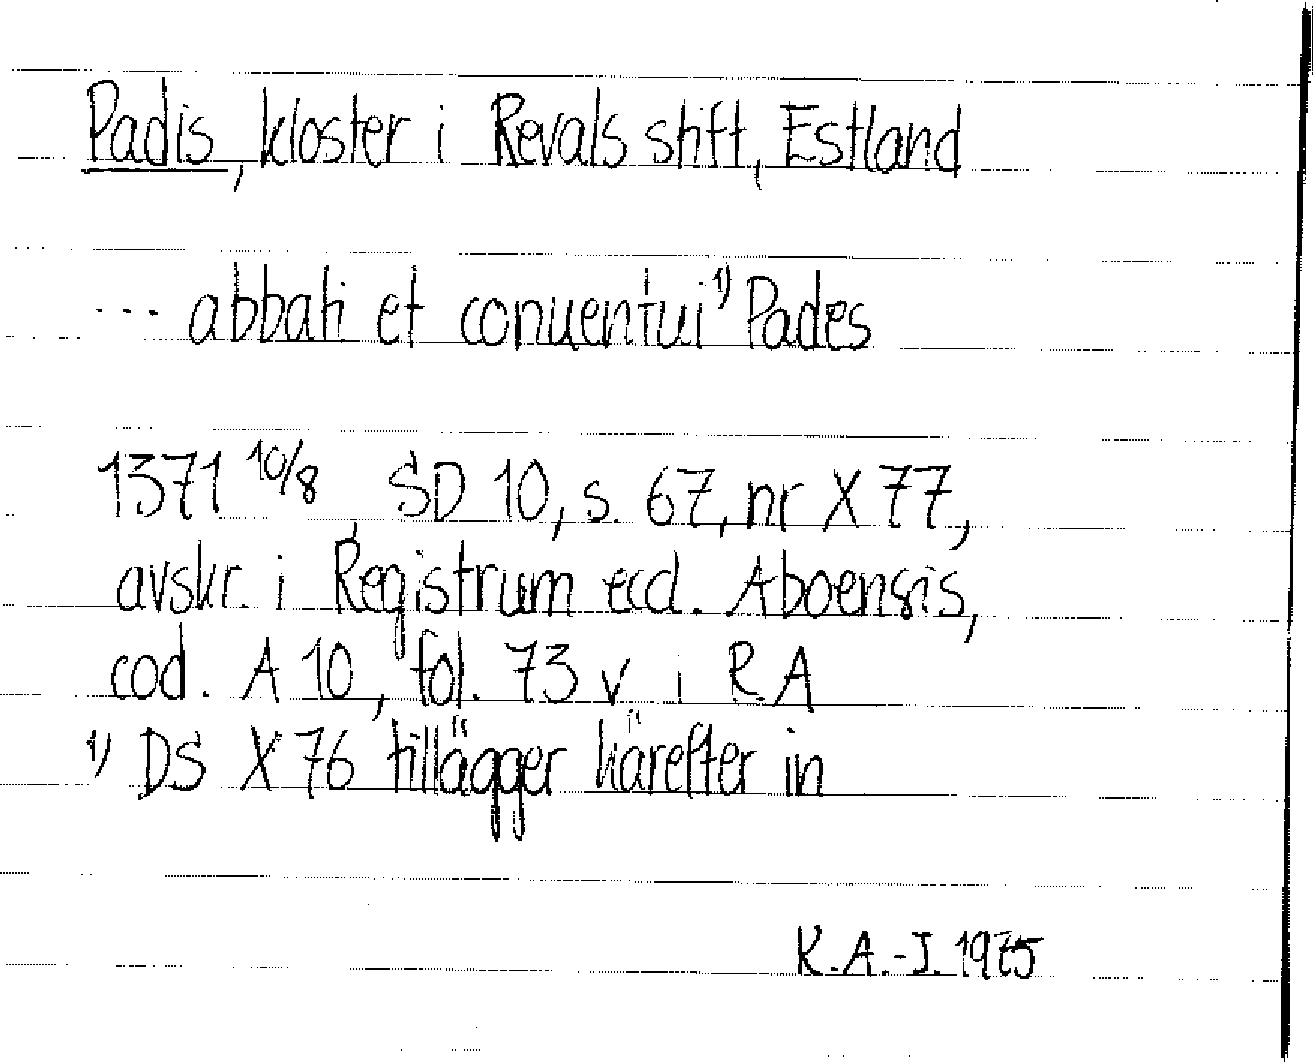 Padis, kloster i Revals stift, Estland
... abbati et conuentui¹⁾ Pades
1371 10/8, SD 10, s. 67, nr X 77,
avskr. i Registrum eccl. Aboensis,
cod. A 10, fol. 73 v i RA
¹⁾ DS X 76 tillägger härefter in
K.A.-J. 1975